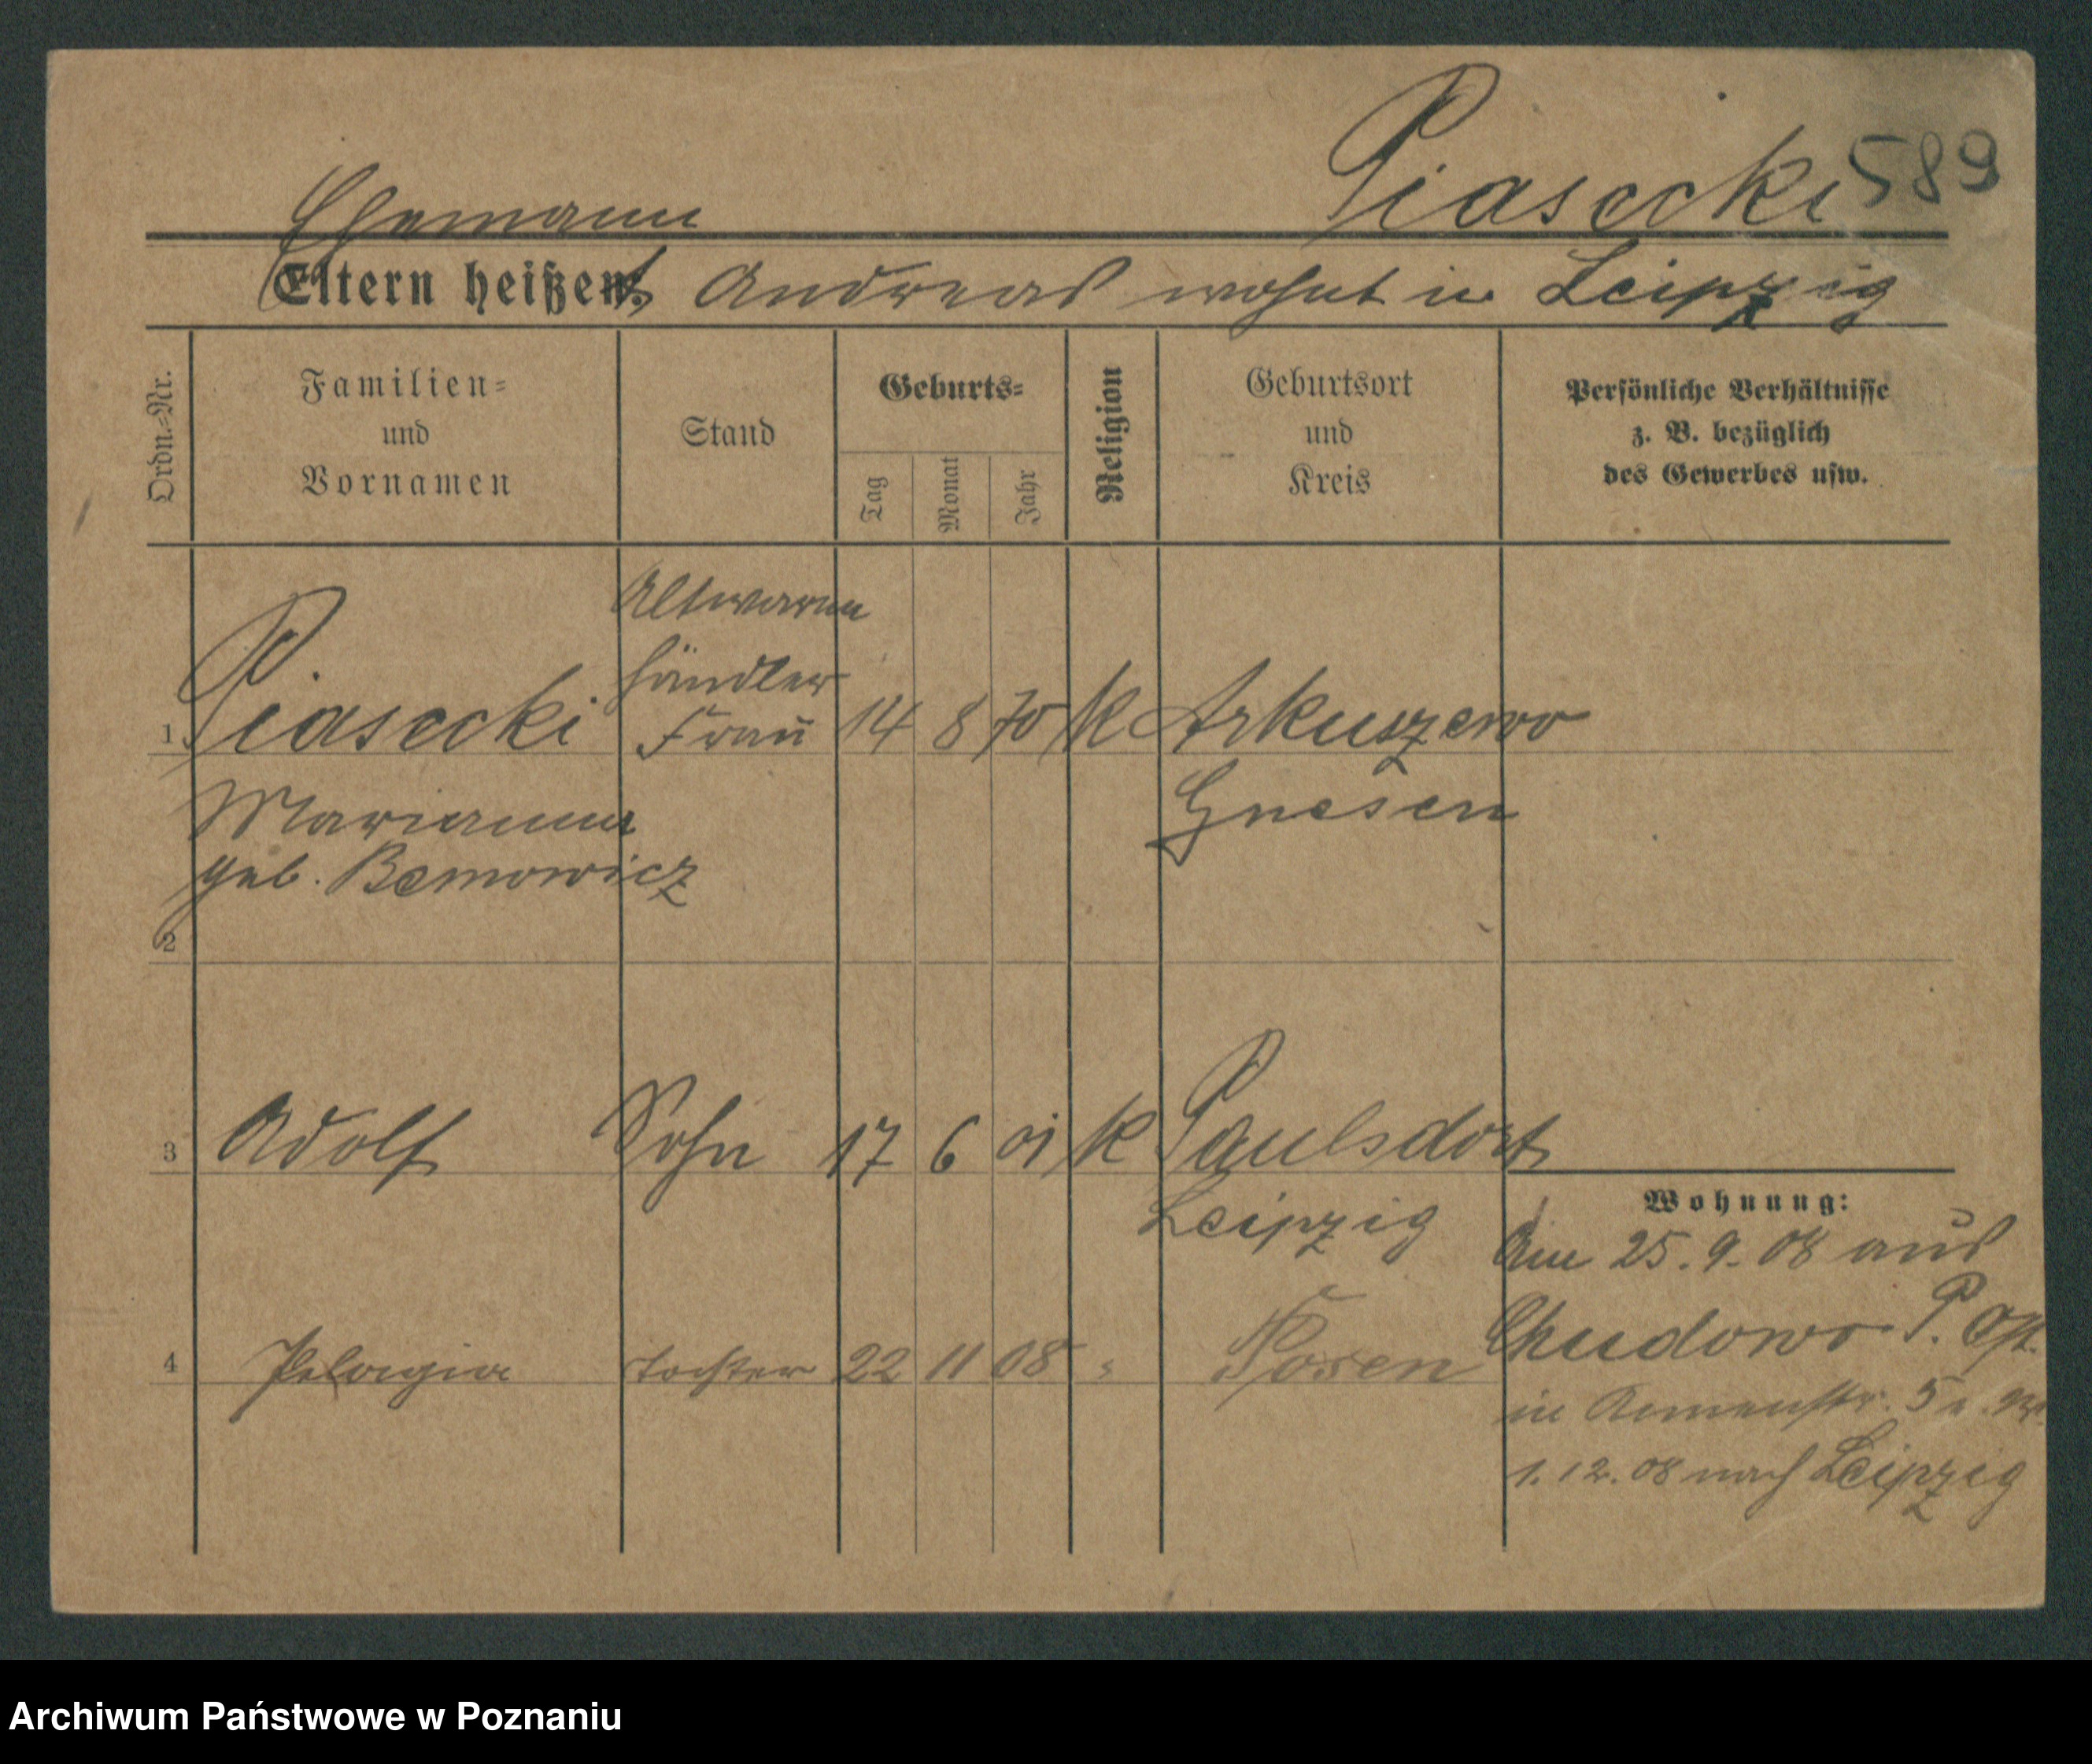 Piasecki 589
Ehemann
Eltern heißen: Andreas wohnt in Leipzig
Ordn.-Nr.
Familien-
und
Vornamen
Stand
Geburts-
Tag
Monat
Jahr
Religion
Geburtsort
und
Kreis
Persönliche Verhältnisse
z. B. bezüglich
des Gewerbes usw.
Altwaren
händler
1 Piasecki Frau 14 8 70 K Arkuszewo
Marianna Gnesen
geb. Bemowicz
2
3 Adolf Sohn 17 6 01 K Paulsdorf
Leipzig
Wohnung:
Am 25.9.08 aus
Chudowo P. Ost.
4 Pelagia Tochter 22 11 08 " Posen
in 5
1.12.08 nach Leipzig
Archiwum Państwowe w Poznaniu